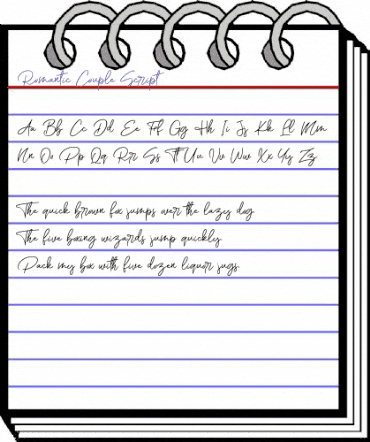 Romantic Couple Script
Aa Bb Cc Dd Ee Ff Gg Hh Ii Jj Kk Ll Mm
Nn Oo Pp Qq Rr Ss Tt Uu Vv Ww Xx Yy Zz
The quick brown fox jumps over the lazy dog
The five boxing wizards jump quickly
Pack my box with five dozen liquor jugs